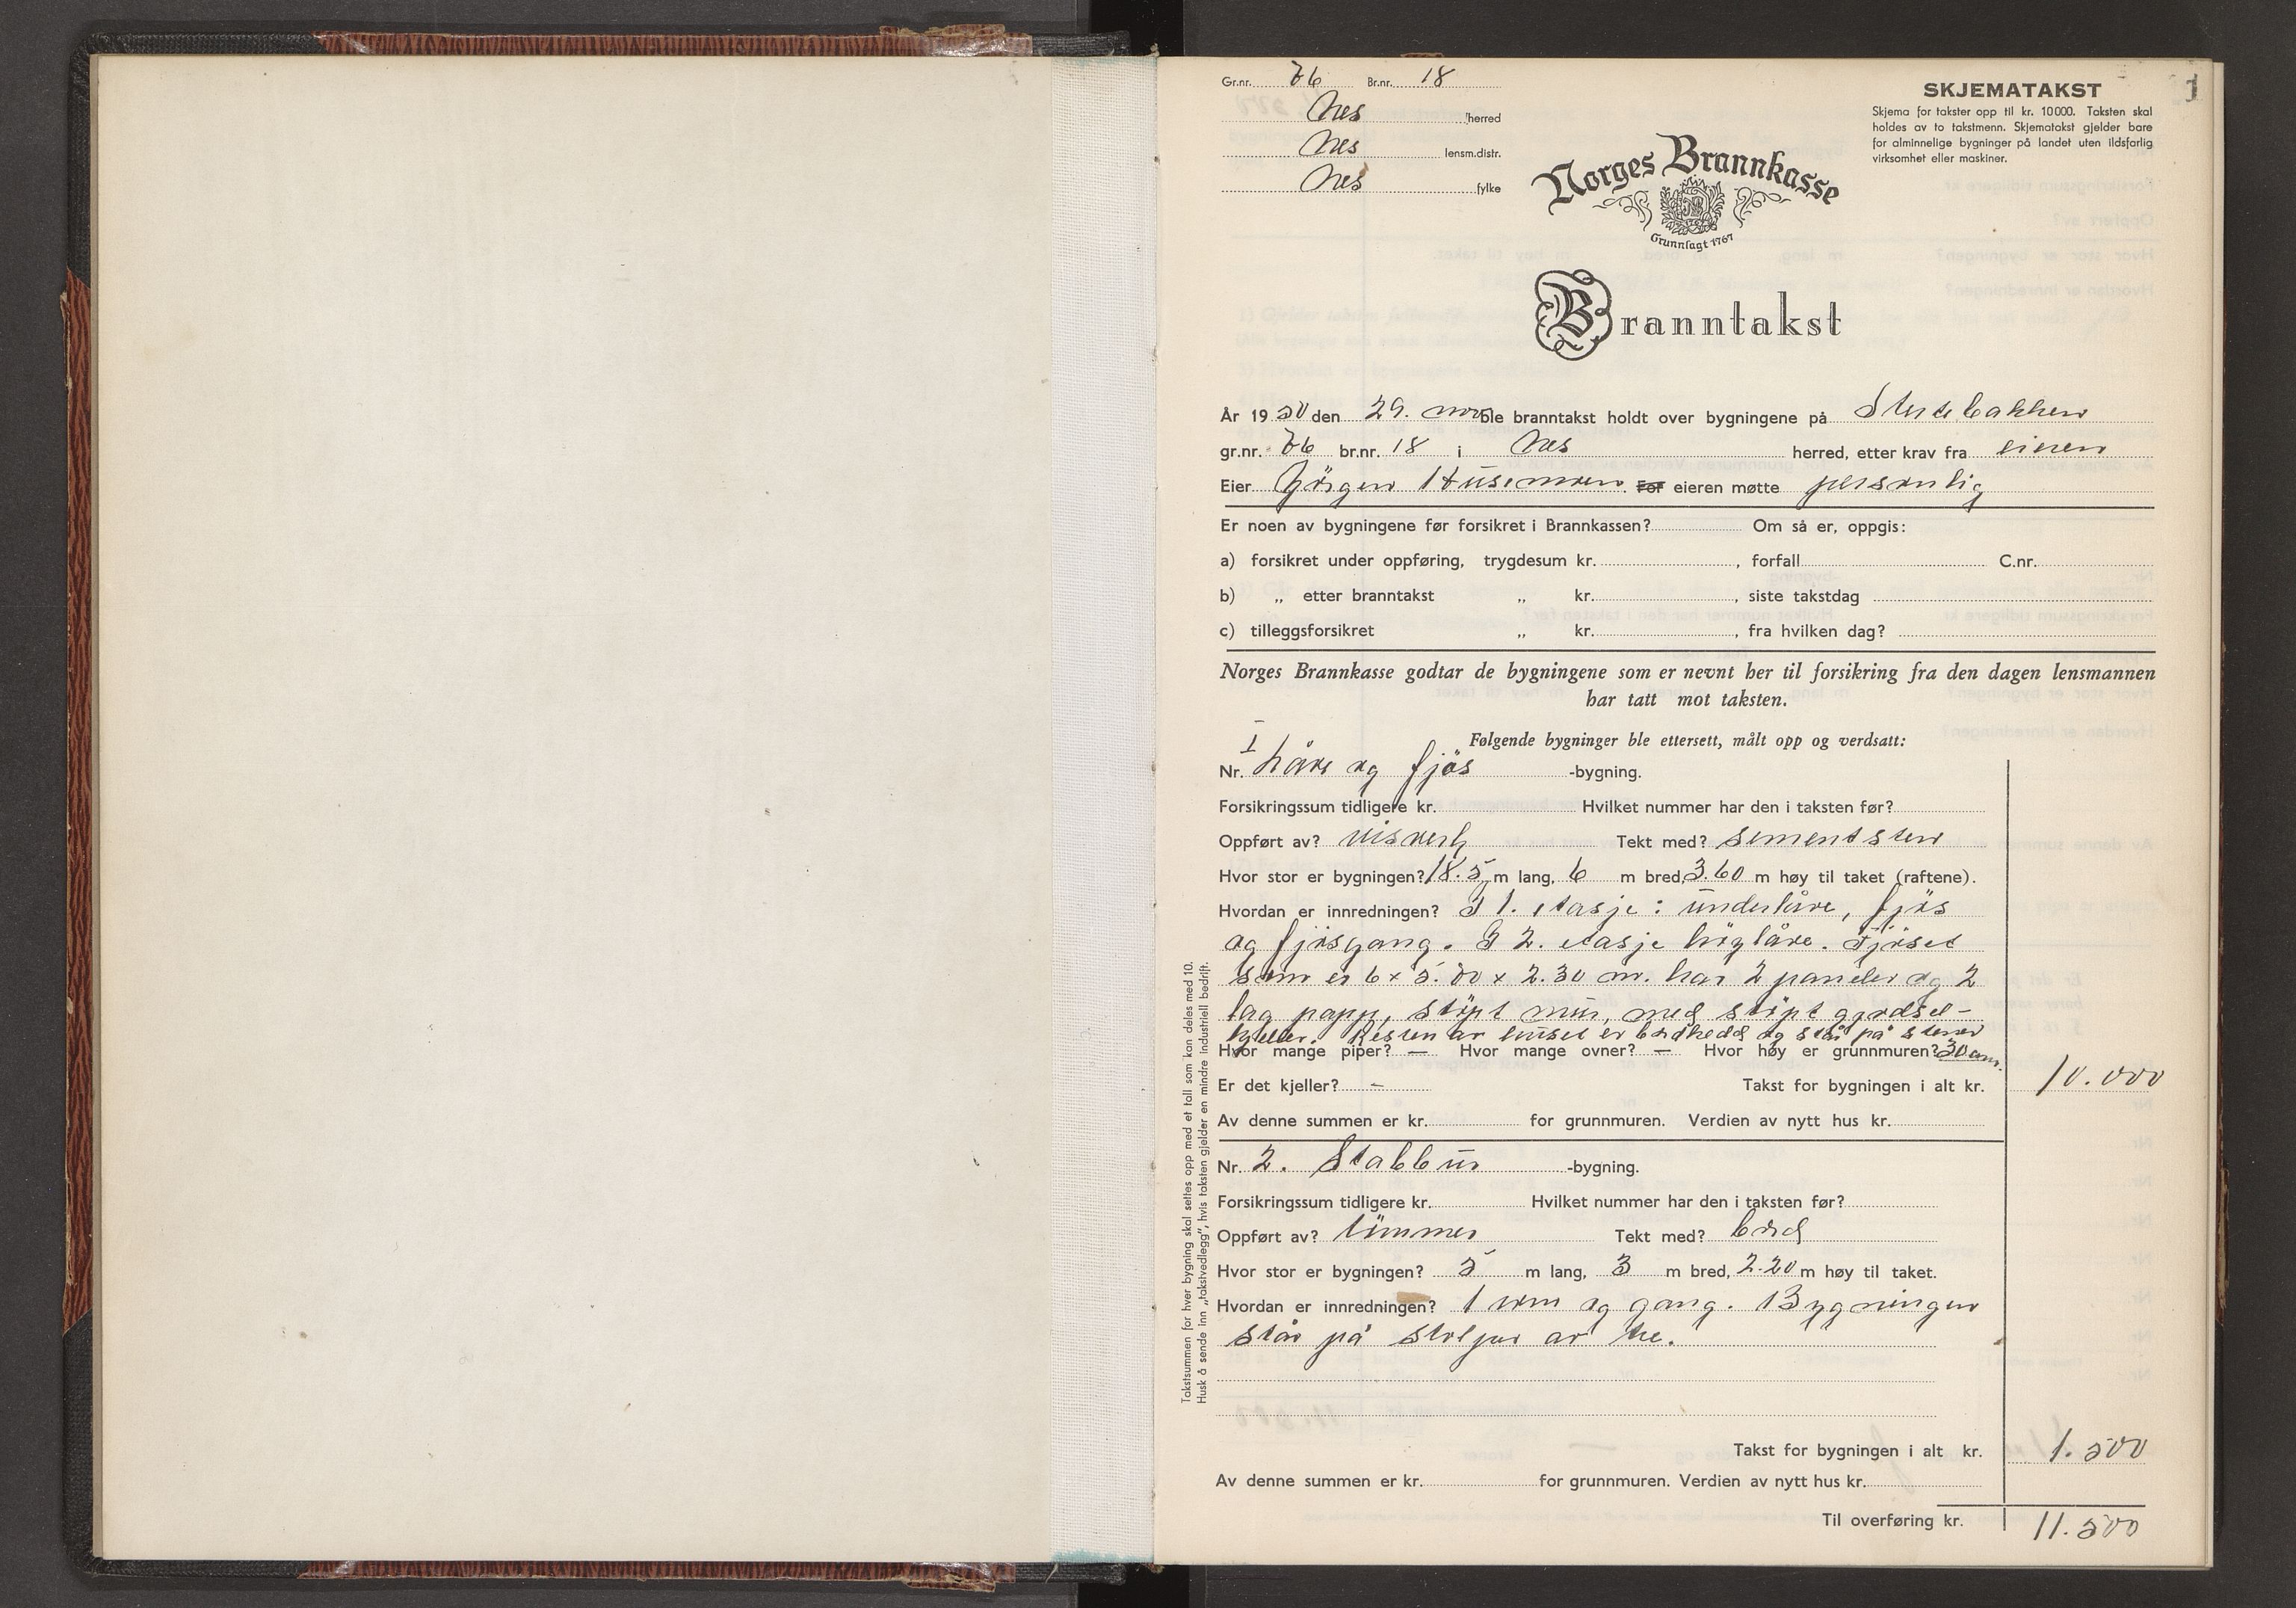 1
Gr.nr. 76 Br.nr. 18
Nes herred
Nes lensm.distr.
Nes fylke
SKJEMATAKST
Skjema for takster opp til kr. 10000. Taksten skal
holdes av to takstmenn. Skjematakst gjelder bare
for alminnelige bygninger på landet uten ildsfarlig
virksomhet eller maskiner.
Norges Brannkasse
Grunnlagt 1767
Branntakst
År 1950 den 29. nov. ble branntakst holdt over bygningene på
gr.nr. 76 br.nr. 18 i Nes herred, etter krav fra eieren
Eier Jörgen Husemoen. For eieren møtte personlig
Er noen av bygningene før forsikret i Brannkassen? Om så er, oppgis:
a) forsikret under oppføring, trygdesum kr. , forfall C.nr.
b) „ etter branntakst „ kr. , siste takstdag
c) tilleggsforsikret „ kr. , fra hvilken dag?
Norges Brannkasse godtar de bygningene som er nevnt her til forsikring fra den dagen lensmannen
har tatt mot taksten.
Følgende bygninger ble ettersett, målt opp og verdsatt:
Nr. I Låve og fjös -bygning.
Forsikringssum tidligere kr. Hvilket nummer har den i taksten før?
Oppført av? Tekt med? sementsten
Hvor stor er bygningen? 18.5 m lang, 6 m bred, 3.60 m høy til taket (raftene).
Hvordan er innredningen? I 1. etasje: underlåve, fjös
og fjösgang. I 2. etasje höylåve. Fjöset
som er 6 x 5.80 x 2.30 m. har 2 paneler og 2
lag papp, stöpt mur, med stöpt gjödsel-
kjeller. Resten av huset er bordkledd og står på stener
Hvor mange piper? — Hvor mange ovner? — Hvor høy er grunnmuren? 30 cm.
Er det kjeller? - Takst for bygningen i alt kr. 10.000
Av denne summen er kr. for grunnmuren. Verdien av nytt hus kr.
Nr. 2. Stabbur -bygning.
Forsikringssum tidligere kr. Hvilket nummer har den i taksten før?
Oppført av? tömmer Tekt med? bord
Hvor stor er bygningen? 5 m lang, 3 m bred, 2.20 m høy til taket.
Hvordan er innredningen? 1 rom og gang. Bygningen
står på stolper av tre.
Takst for bygningen i alt kr. 1.500
Av denne summen er kr. for grunnmuren. Verdien av nytt hus kr.
Til overføring kr. 11.500
Takstsummen for hver bygning skal settes opp med et tall som kan deles med 10.
Husk å sende inn „takstvedlegg", hvis taksten gjelder en mindre industriell bedrift.